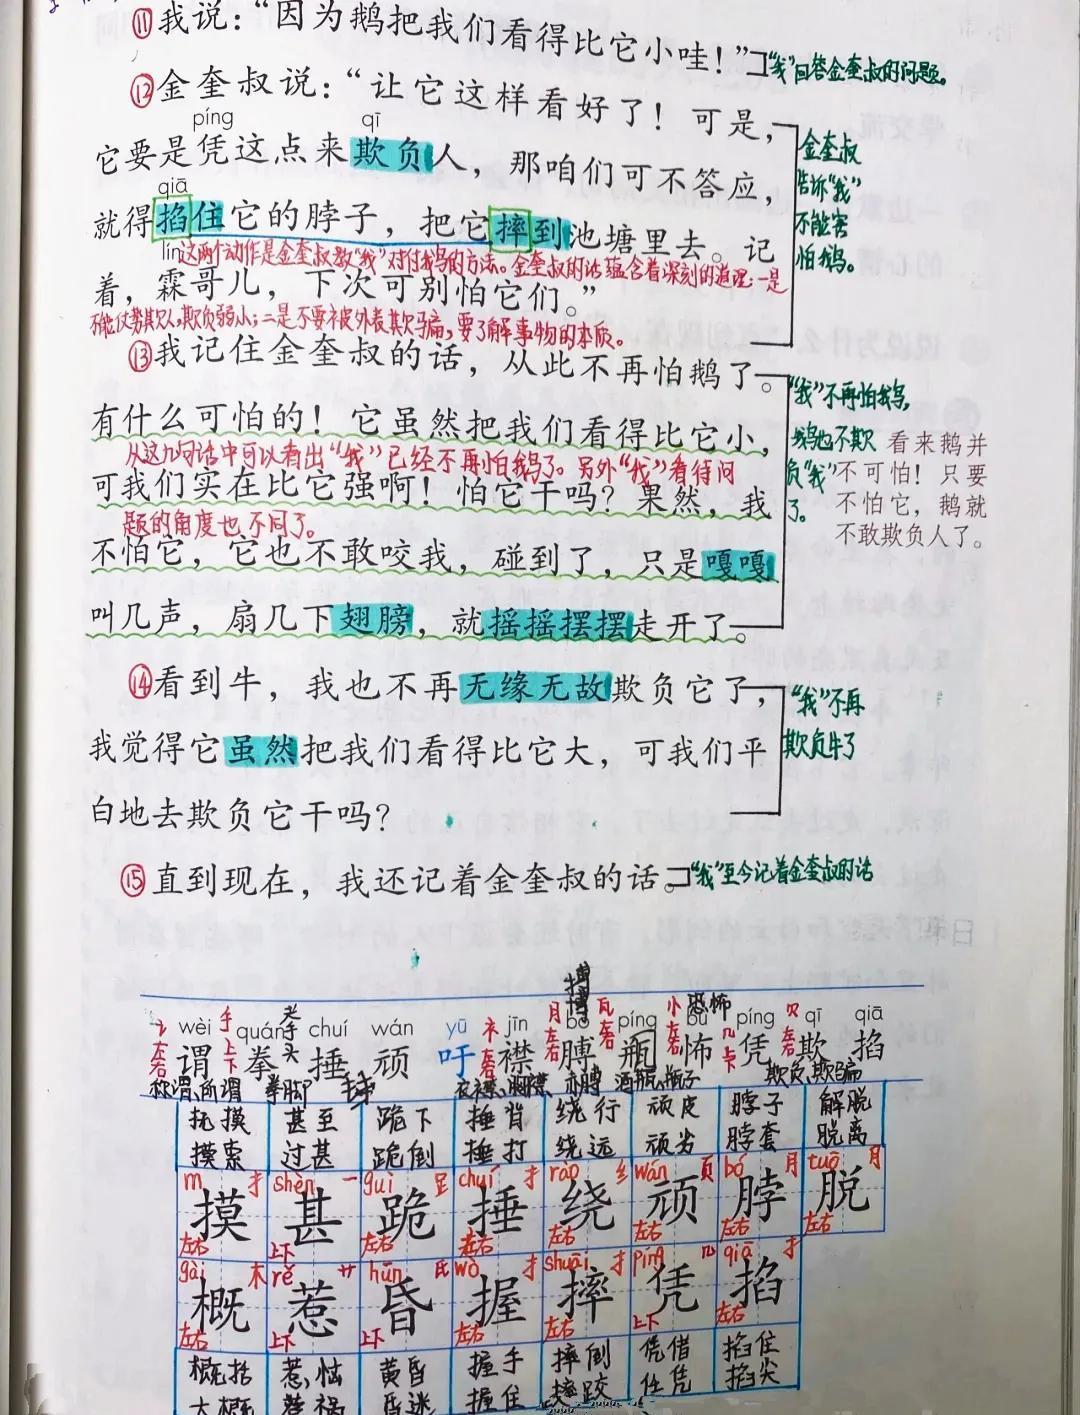 ⑪我说：“因为鹅把我们看得比它小哇！”
“我”回答金奎叔的问题。
⑫金奎叔说：“让它这样看好了！可是，
píng qī
它要是凭这点来欺负人，那咱们可不答应，
qiā
就得掐住它的脖子，把它摔到池塘里去。记
lín
这两个动作是金奎叔教“我”对付鹅的方法。金奎叔的话蕴含着深刻的道理：一是
着，霖哥儿，下次可别怕它们。”
不能仗势欺人，欺负弱小；二是不要被外表欺骗，要了解事物的本质。
金奎叔
告诉“我”
不能害
怕鹅。
⑬我记住金奎叔的话，从此不再怕鹅了。
有什么可怕的！它虽然把我们看得比它小，
从这几句话中可以看出“我”已经不再怕鹅了。另外“我”看待问
可我们实在比它强啊！怕它干吗？果然，我
题的角度也不同了。
不怕它，它也不敢咬我，碰到了，只是嘎嘎
叫几声，扇几下翅膀，就摇摇摆摆走开了。
“我”不再怕鹅，
鹅也不欺
负“我”
了。
看来鹅并
不可怕！只要
不怕它，鹅就
不敢欺负人了。
⑭看到牛，我也不再无缘无故欺负它了，
我觉得它虽然把我们看得比它大，可我们平
白地去欺负它干吗？
“我”不再
欺负牛了
⑮直到现在，我还记着金奎叔的话。
“我”至今记着金奎叔的话
wèi quán chuí wán yū jīn bó píng bù píng qī qiā
谓 拳 捶 顽 吁 襟 膊 瓶 怖 凭 欺 掐
恐怖
称谓、所谓 拳脚 衣襟、胸襟 赤膊 酒瓶、瓶子 欺负、欺骗
抚摸 甚至 跪下 捶背 绕行 顽皮 脖子 解脱
摸索 过甚 跪倒 捶打 绕远 顽劣 脖套 脱离
m 扌 shèn 一 guì 𧾷 chuí 扌 rào 纟 wán 页 bó 月 tuō 月
摸 甚 跪 捶 绕 顽 脖 脱
左右 上下 左右 左右 左右 左右 左右 左右
gài 木 rě 艹 hūn 氏 wò 扌 shuāi 扌 píng 几 qiā 扌
概 惹 昏 握 摔 凭 掐
左右 上下 上下 左右 左右 上下 左右
概括 惹怒 黄昏 握手 摔倒 凭借 掐住
大概 惹祸 昏迷 握住 摔跤 任凭 掐尖